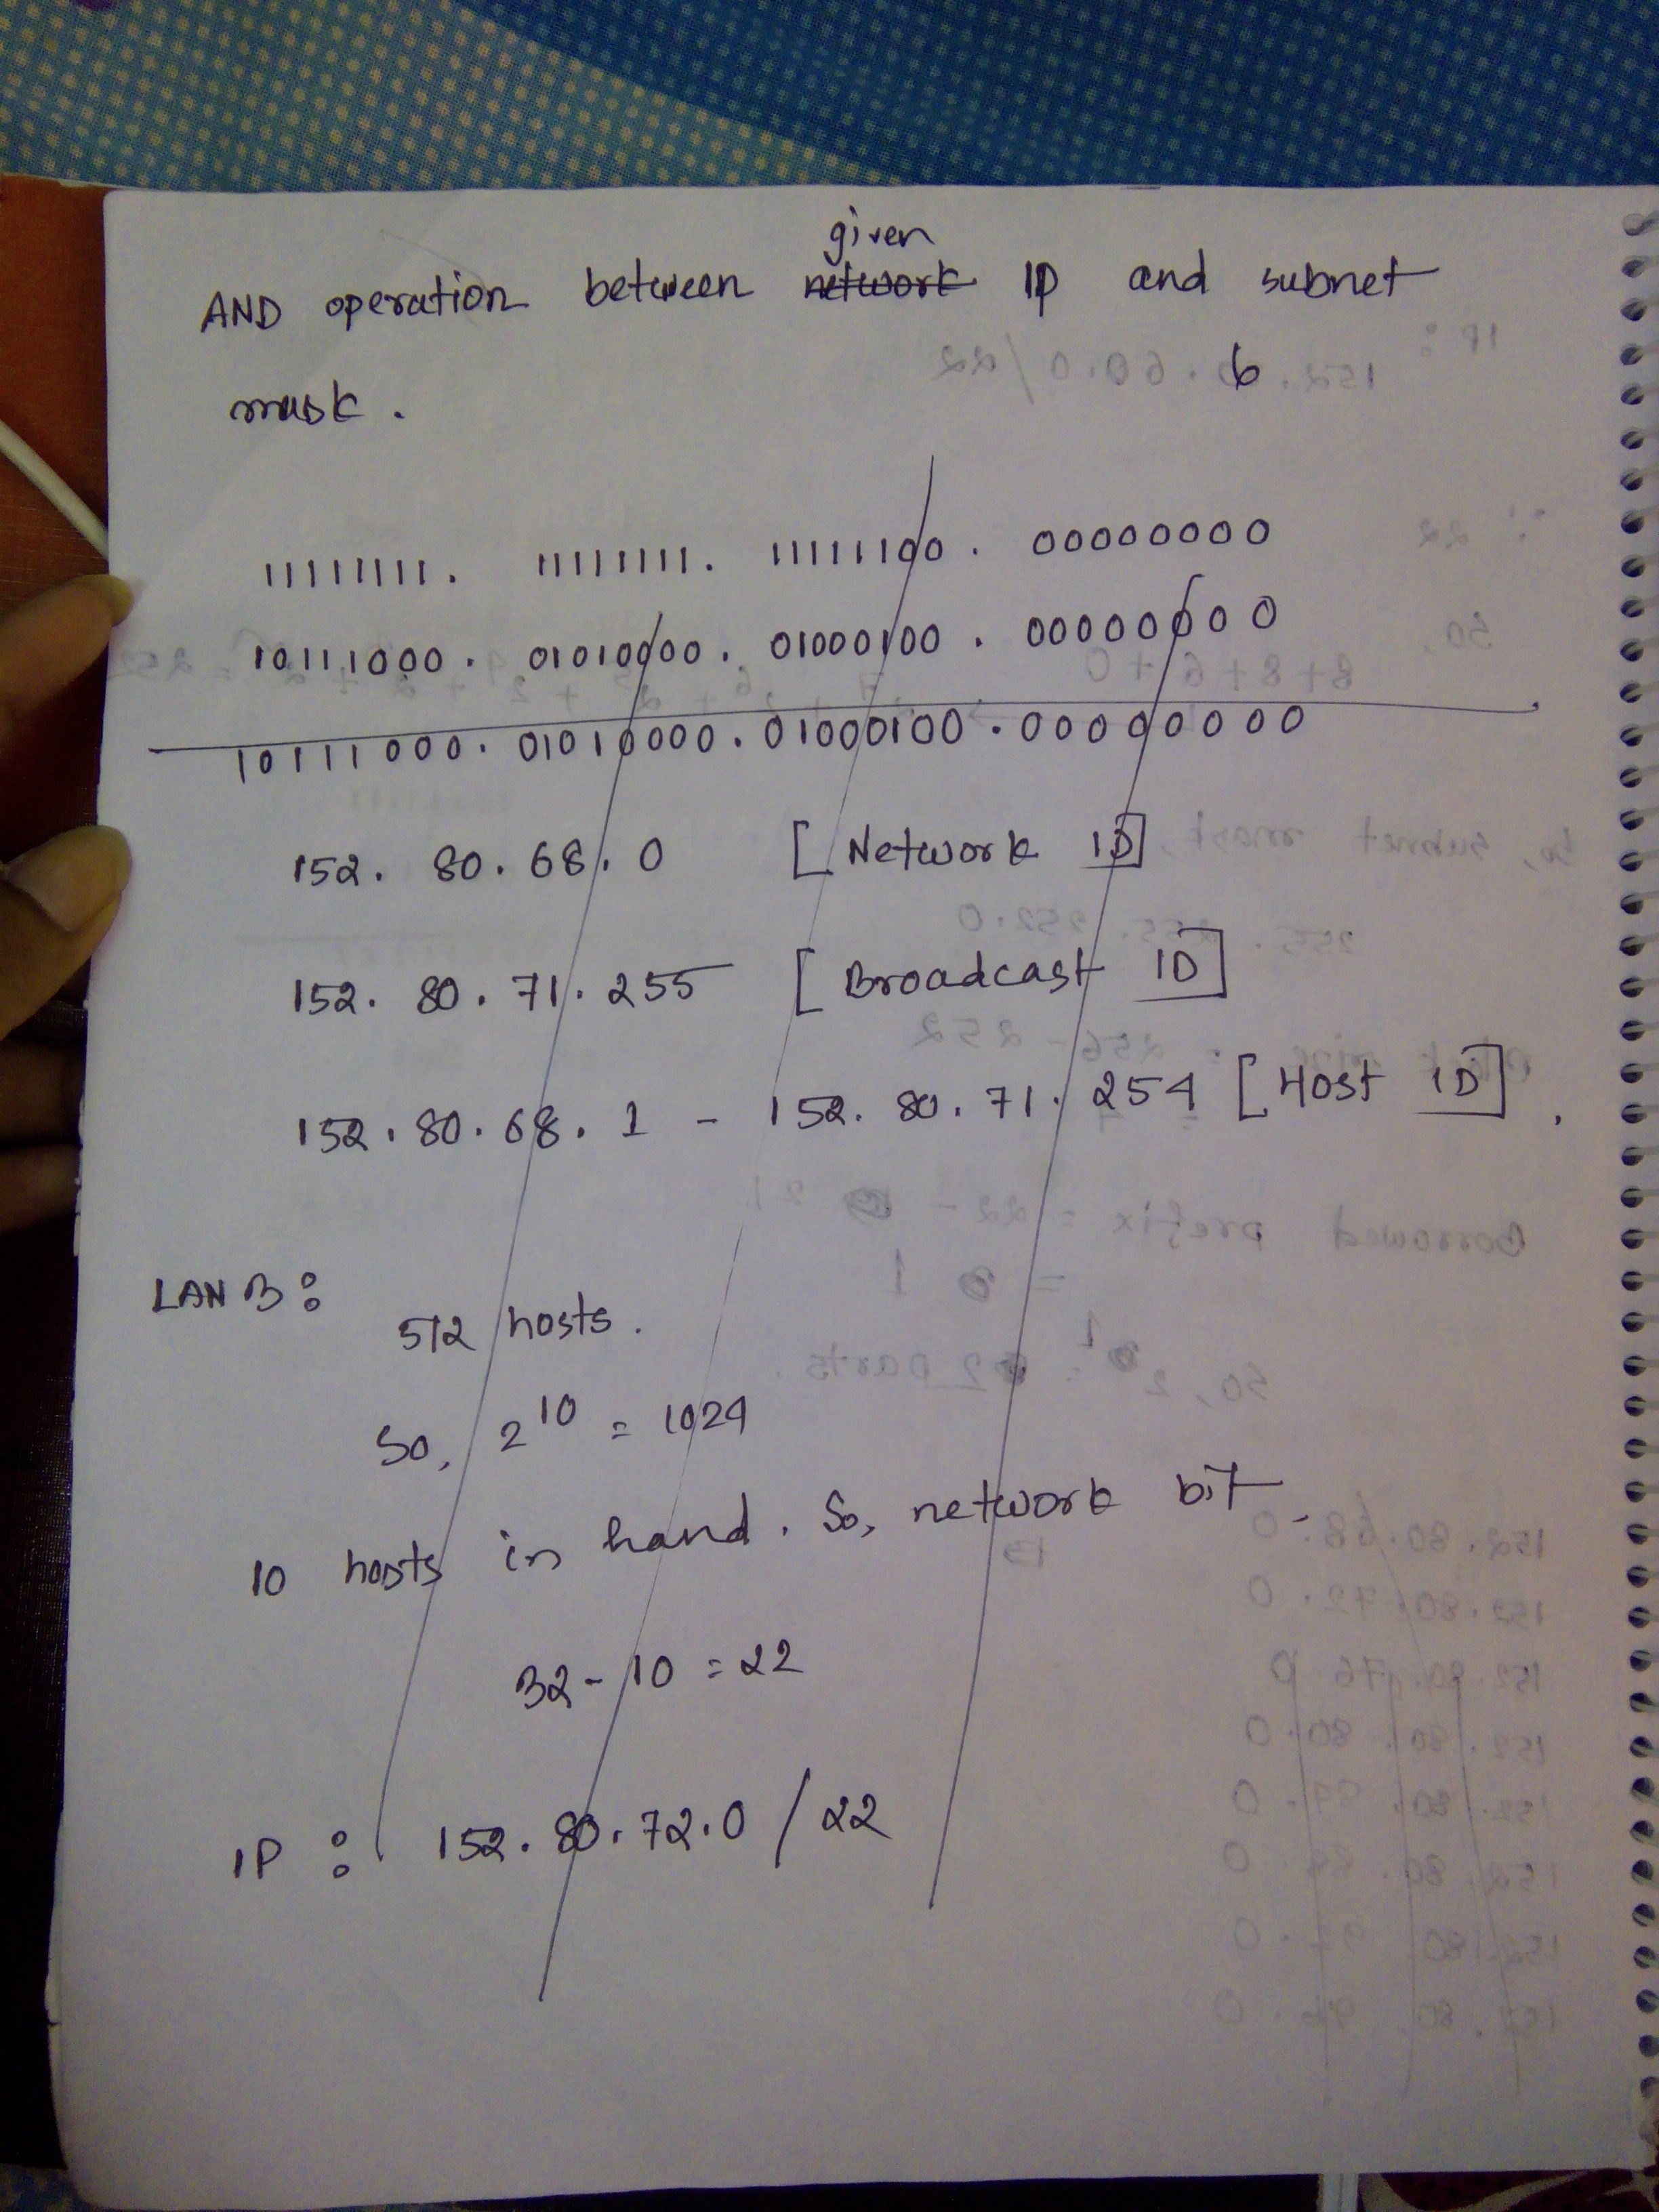 given
AND operation between network IP and subnet
mask.
6
11111111. 11111111. 11111100. 00000000
10111000. 01010000. 01000100. 00000000
10111000. 01010000. 01000100. 00000000
152. 80. 68. 0 [Network ID]
152. 80. 71. 255 [Broadcast ID]
152. 80. 68. 1 - 152. 80. 71. 254 [Host ID].
LAN 3:
512 hosts.
So, 2^10 = 1024
10 hosts in hand. So, network bit-
32-10 = 22
IP: 152. 80. 72. 0 / 22